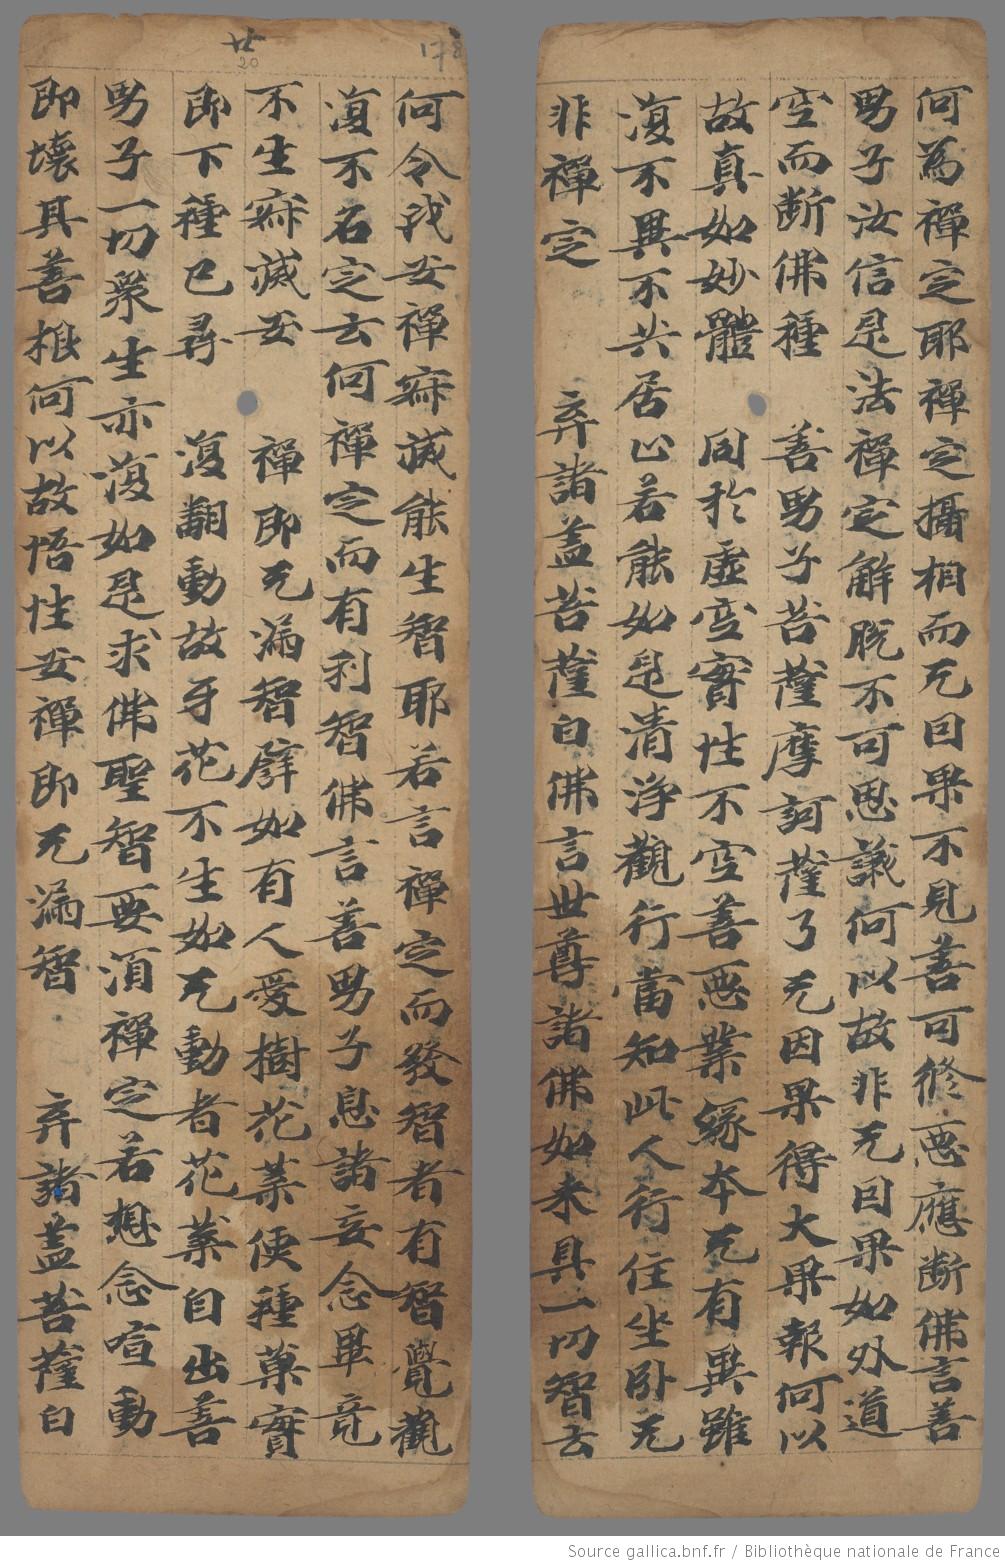 廿
20
178
何為禪定耶禪定攝相而无因果不見善可修惡應斷佛言善
男子汝信是法禪定解脫不可思議何以故非无因果如外道
空而断佛種 善男子菩薩摩訶薩了无因果得大果報何以
故真如妙體 同於虛空實性不空善惡業緣本无有異雖
復不異不共居止若能如是清淨觀行當知此人行住坐卧无
非禪定 弃諸盖菩薩白佛言世尊諸佛如来具一切智云
何令我安禪寂滅能生智耶若言禪定而發智者有智覺觀
復不名定云何禪定而有利智佛言善男子息諸妄念畢竟
不生寂滅安 禪即无漏智譬如有人愛樹花菓便種菓實
即下種已尋 復翻動故牙花不生如无動者花菓自出善
男子一切衆生亦復如是求佛聖智要須禪定若想念喧動
即壞其善根何以故悟性安禪即无漏智 弃諸盖菩薩白
Source gallica.bnf.fr / Bibliothèque nationale de France